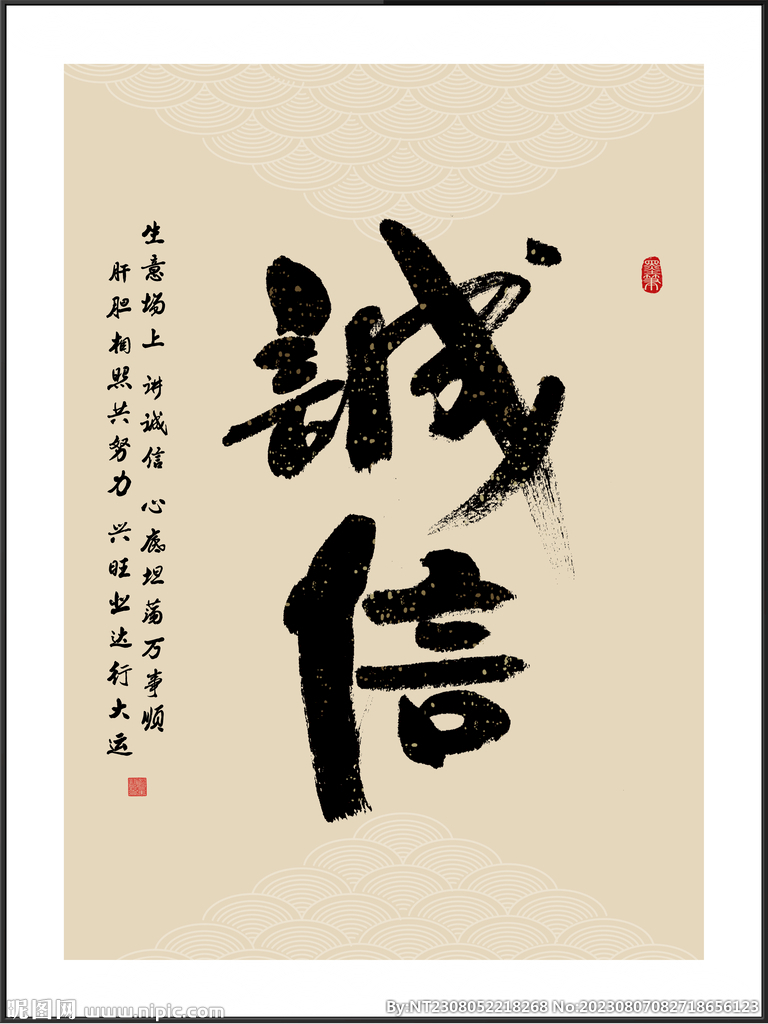 誠信
生意场上 讲诚信 心底坦荡万事顺
肝胆相照共努力 兴旺业达行大运
昵图网 www.nipic.com
By:NT2308052218268 No:20230807082718656123